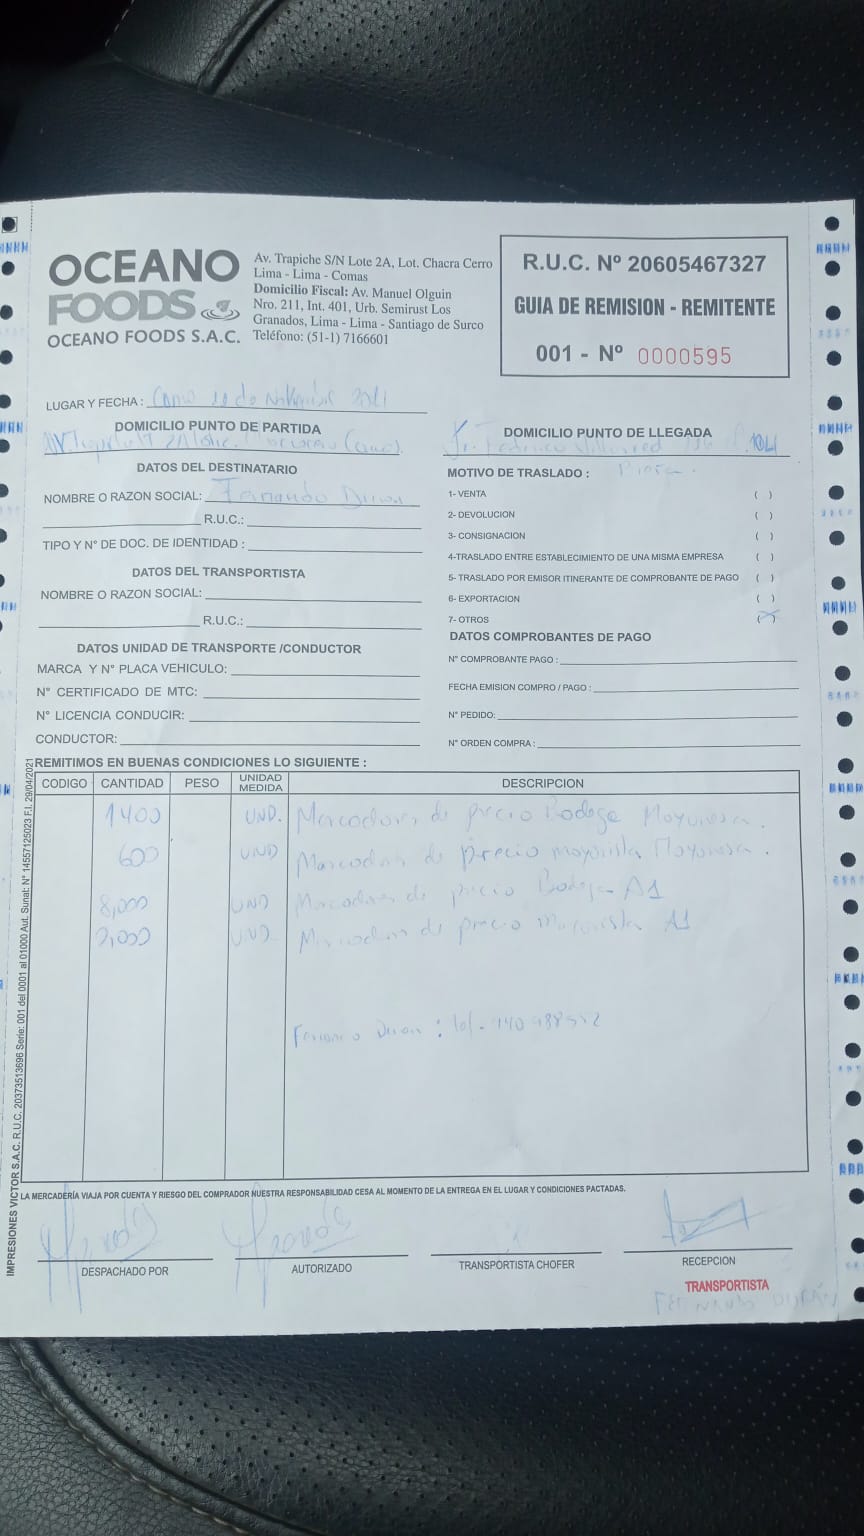 OCEANO
FOODS
OCEANO FOODS S.A.C.
Av. Trapiche S/N Lote 2A, Lot. Chacra Cerro
Lima - Lima - Comas
Domicilio Fiscal: Av. Manuel Olguin
Nro. 211, Int. 401, Urb. Semirust Los
Granados, Lima - Lima - Santiago de Surco
Teléfono: (51-1) 7166601
R.U.C. Nº 20605467327
GUIA DE REMISION - REMITENTE
001 - Nº 0000595
LUGAR Y FECHA : de 2021
DOMICILIO PUNTO DE PARTIDA
DOMICILIO PUNTO DE LLEGADA
DATOS DEL DESTINATARIO
NOMBRE O RAZON SOCIAL: Fernando
R.U.C.:
TIPO Y N° DE DOC. DE IDENTIDAD :
DATOS DEL TRANSPORTISTA
NOMBRE O RAZON SOCIAL:
R.U.C.:
DATOS UNIDAD DE TRANSPORTE /CONDUCTOR
MARCA Y N° PLACA VEHICULO:
N° CERTIFICADO DE MTC:
N° LICENCIA CONDUCIR:
CONDUCTOR:
MOTIVO DE TRASLADO :
1- VENTA ( )
2- DEVOLUCION ( )
3- CONSIGNACION ( )
4-TRASLADO ENTRE ESTABLECIMIENTO DE UNA MISMA EMPRESA ( )
5- TRASLADO POR EMISOR ITINERANTE DE COMPROBANTE DE PAGO ( )
6- EXPORTACION ( )
7- OTROS (X)
DATOS COMPROBANTES DE PAGO
N° COMPROBANTE PAGO :
FECHA EMISION COMPRO / PAGO :
N° PEDIDO:
N° ORDEN COMPRA :
REMITIMOS EN BUENAS CONDICIONES LO SIGUIENTE :
CODIGO CANTIDAD PESO UNIDAD MEDIDA DESCRIPCION
1400 UND. Marcadores de precio Bodega Mayonesa.
600 UND Marcadores de precio mayorista Mayonesa.
8,000 UND Marcadores de precio Bodega A1
UND. Marcadores de precio Mayorista A1
LA MERCADERÍA VIAJA POR CUENTA Y RIESGO DEL COMPRADOR NUESTRA RESPONSABILIDAD CESA AL MOMENTO DE LA ENTREGA EN EL LUGAR Y CONDICIONES PACTADAS.
DESPACHADO POR
AUTORIZADO
TRANSPORTISTA CHOFER
RECEPCION
TRANSPORTISTA
FERNANDO DURÁN
IMPRESIONES VICTOR S.A.C. R.U.C. 20373513696 Serie: 001 del 0001 al 01000 Aut. Sunat: N° 14557125023 F.I. 29/04/2021